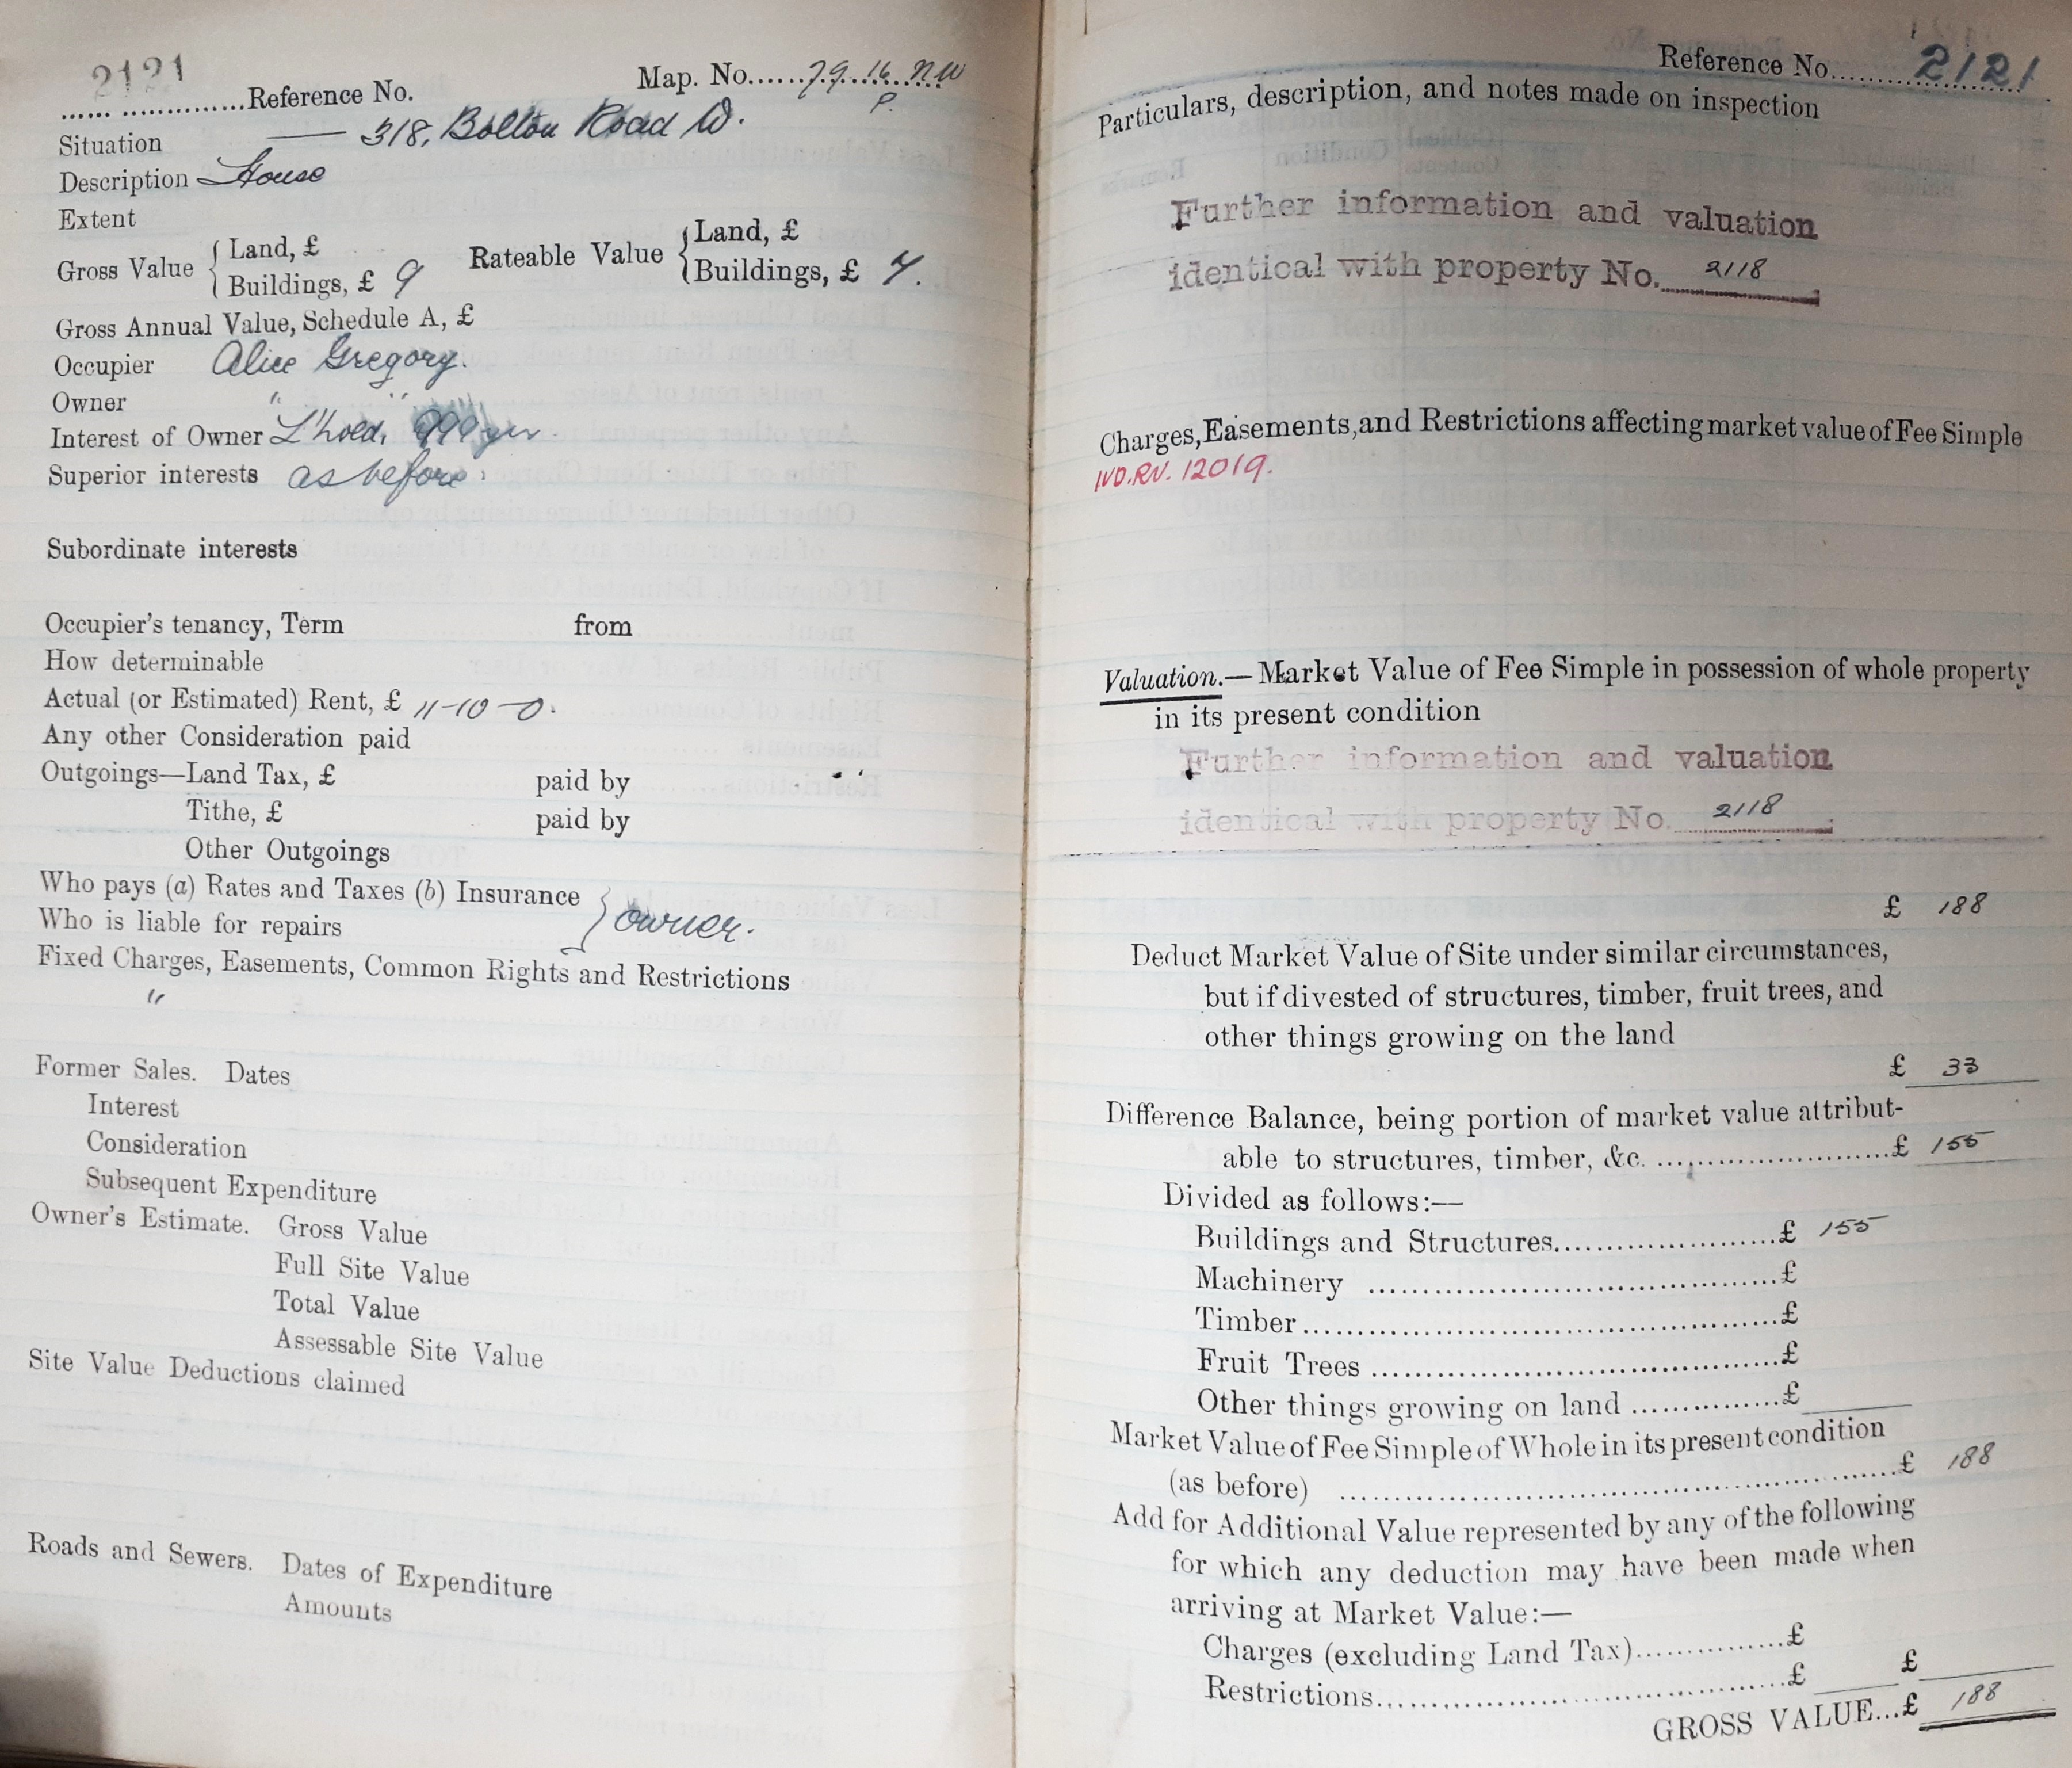 2121
...... ...............Reference No.
Map. No......79.16.NW
P.
Situation — 318, Bolton Road W.
Description House
Extent
Gross Value { Land, £
Buildings, £ 9
Rateable Value { Land, £
Buildings, £ 7.
Gross Annual Value, Schedule A, £
Occupier Alice Gregory.
Owner " "
Interest of Owner L'hold. 999 yrs
Superior interests as before.
Subordinate interests
Occupier's tenancy, Term from
How determinable
Actual (or Estimated) Rent, £ 11-10-0.
Any other Consideration paid
Outgoings—Land Tax, £ paid by
Tithe, £ paid by
Other Outgoings
Who pays (a) Rates and Taxes (b) Insurance
Who is liable for repairs } owner.
Fixed Charges, Easements, Common Rights and Restrictions
"
Former Sales. Dates
Interest
Consideration
Subsequent Expenditure
Owner's Estimate. Gross Value
Full Site Value
Total Value
Assessable Site Value
Site Value Deductions claimed
Roads and Sewers. Dates of Expenditure
Amounts
Reference No..........2121
Particulars, description, and notes made on inspection
Further information and valuation
identical with property No. 2118
Charges, Easements, and Restrictions affecting market value of Fee Simple
IVD.RV. 12019.
Valuation.—Market Value of Fee Simple in possession of whole property
in its present condition
Further information and valuation
identical with property No. 2118
£ 188
Deduct Market Value of Site under similar circumstances,
but if divested of structures, timber, fruit trees, and
other things growing on the land
£ 33
Difference Balance, being portion of market value attribut-
able to structures, timber, &c. ..........................£ 155
Divided as follows:—
Buildings and Structures........................£ 155
Machinery ...........................................£
Timber..................................................£
Fruit Trees ...........................................£
Other things growing on land ................£
Market Value of Fee Simple of Whole in its present condition
(as before) ..........................................................£ 188
Add for Additional Value represented by any of the following
for which any deduction may have been made when
arriving at Market Value:—
Charges (excluding Land Tax)................£
Restrictions..........................................£ £
GROSS VALUE...£ 188